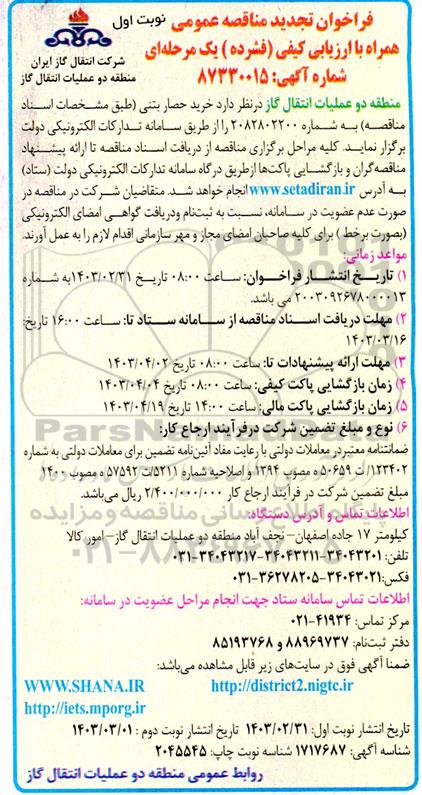 فراخوان تجدید مناقصه عمومی
نوبت اول
همراه با ارزیابی کیفی (فشرده) یک مرحله‌ای
شماره آگهی: ۸۷۳۳۰۰۱۵
شرکت انتقال گاز ایران
منطقه دو عملیات انتقال گاز
منطقه دو عملیات انتقال گاز درنظر دارد خرید حصار بتنی (طبق مشخصات اسناد
مناقصه) به شماره ۲۰۸۲۸۰۲۲۰۰ را از طریق سامانه تدارکات الکترونیکی دولت
برگزار نماید. کلیه مراحل برگزاری مناقصه از دریافت اسناد مناقصه تا ارائه پیشنهاد
مناقصه‌گران و بازگشایی پاکت‌ها ازطریق درگاه سامانه تدارکات الکترونیکی دولت (ستاد)
به آدرس www.setadiran.ir انجام خواهد شد. متقاضیان شرکت در مناقصه در
صورت عدم عضویت در سامانه، نسبت به ثبت‌نام ودریافت گواهی امضای الکترونیکی
(بصورت برخط) برای کلیه صاحبان امضای مجاز و مهر سازمانی اقدام لازم را به عمل آورند.
مواعد زمانی:
۱) تاریخ انتشار فراخوان: ساعت ۰۸:۰۰ تاریخ ۱۴۰۳/۰۲/۳۱ به شماره
۲۰۰۳۰۹۲۶۷۸۰۰۰۰۱۳ می باشد.
۲) مهلت دریافت اسناد مناقصه از سامانه ستاد تا: ساعت ۱۶:۰۰ تاریخ:
۱۴۰۳/۰۳/۱۶
۳) مهلت ارائه پیشنهادات تا: ساعت ۰۸:۰۰ تاریخ ۱۴۰۳/۰۴/۰۲
۴) زمان بازگشایی پاکت کیفی: ساعت ۰۸:۰۰ تاریخ ۱۴۰۳/۰۴/۰۴
۵) زمان بازگشایی پاکت مالی: ساعت ۱۴:۰۰ تاریخ ۱۴۰۳/۰۴/۱۹
۶) نوع و مبلغ تضمین شرکت درفرآیند ارجاع کار:
ضمانتنامه معتبردر معاملات دولتی با رعایت مفاد آئین‌نامه تضمین برای معاملات دولتی به شماره
۱۲۳۴۰۲/ت ۵۰۶۵۹ ه مصوب ۱۳۹۴ و اصلاحیه شماره ۵۲۱۱/ت ۵۷۵۹۲ ه مصوب ۱۴۰۰
مبلغ تضمین شرکت در فرآیند ارجاع کار ۲/۴۰۰/۰۰۰/۰۰۰ ریال می‌باشد.
اطلاعات تماس و آدرس دستگاه:
کیلومتر ۱۷ جاده اصفهان- نجف آباد منطقه دو عملیات انتقال گاز- امور کالا
تلفن: ۳۴۰۴۳۲۰۱-۳۴۰۴۳۲۱۱-۳۴۰۴۳۲۱۷-۰۳۱
فکس: ۳۴۰۴۳۰۲۱-۳۶۲۷۸۲۰۵-۰۳۱
اطلاعات تماس سامانه ستاد جهت انجام مراحل عضویت در سامانه:
مرکز تماس: ۴۱۹۳۴-۰۲۱
دفتر ثبت‌نام: ۸۸۹۶۹۷۳۷ و ۸۵۱۹۳۷۶۸
ضمنا آگهی فوق در سایت‌های زیر قابل مشاهده می‌باشد:
http://district2.nigtc.ir WWW.SHANA.IR
http://iets.mporg.ir
تاریخ انتشار نوبت اول: ۱۴۰۳/۰۲/۳۱ تاریخ انتشار نوبت دوم : ۱۴۰۳/۰۳/۰۱
شناسه آگهی: ۱۷۱۷۶۸۷ شناسه نوبت چاپ: ۲۰۴۵۵۴۵
روابط عمومی منطقه دو عملیات انتقال گاز